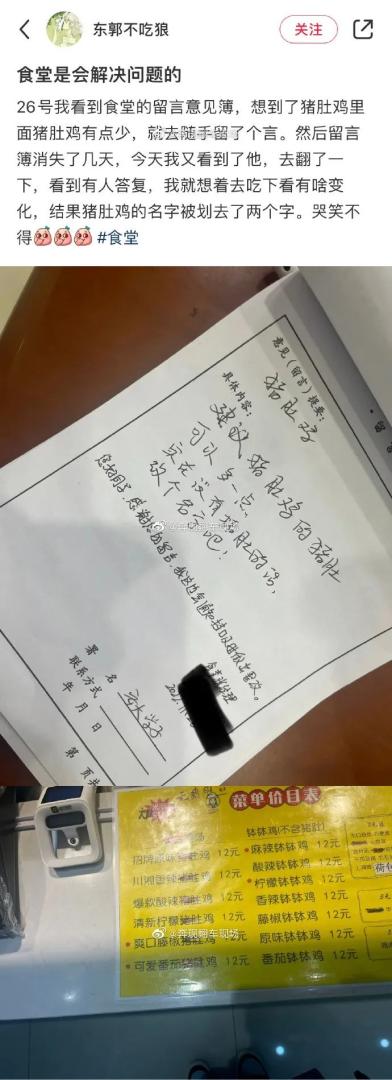 东郭不吃狼
关注
食堂是会解决问题的
26号我看到食堂的留言意见薄，想到了猪肚鸡里
面猪肚鸡有点少，就去随手留了个言。然后留言
簿消失了几天，今天我又看到了他，去翻了一
下，看到有人答复，我就想着去吃下看有啥变
化，结果猪肚鸡的名字被划去了两个字。哭笑不
得 #食堂
意见（留言）提要：
猪肚鸡
具体内容：
建议猪肚鸡的猪肚
可以多一点，
实在没有猪肚的话，
改个名字吧！
您好同学，感谢您的留言，我这边会通知档口及时做出整改。
署 名
联系方式
年 月 日
第 页共
@奔现翻车现场
菜单价目表
招牌原味猪肚鸡 12元
川湘香辣猪肚鸡 12元
爆款酸辣猪肚鸡 12元
清新柠檬猪肚鸡 12元
爽口藤椒猪肚鸡 12元
可爱番茄猪肚鸡 12元
钵钵鸡(不含猪肚)
麻辣钵钵鸡 12元
酸辣钵钵鸡 12元
柠檬钵钵鸡 12元
香辣钵钵鸡 12元
藤椒钵钵鸡 12元
原味钵钵鸡 12元
番茄钵钵鸡 12元
@奔现翻车现场